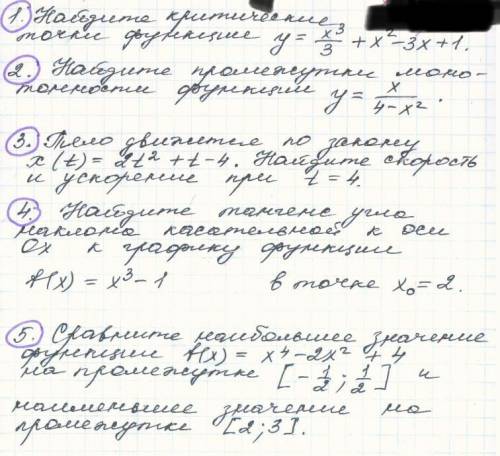 1. Найдите критические
точки функции y = x³/3 + x² - 3x + 1.
2. Найдите промежутки моно-
тонности функции y = x/(4 - x²).
3. Тело движется по закону
x(t) = 2t² + t - 4. Найдите скорость
и ускорение при t = 4.
4. Найдите тангенс угла
наклона касательной к оси
Ox к графику функции
f(x) = x³ - 1 в точке x₀ = 2.
5. Сравните наибольшее значение
функции f(x) = x⁴ - 2x² + 4
на промежутке [-1/2; 1/2] и
наименьшее значение на
промежутке [2; 3].